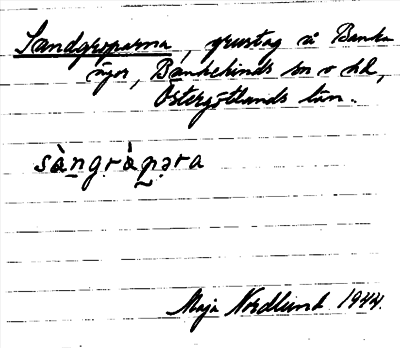 Sandgroparna, grustag å Banka
ägor, Bankekinds sn o hd,
Östergötlands län.
sàngràpəra
Maja Nordlund 1944.